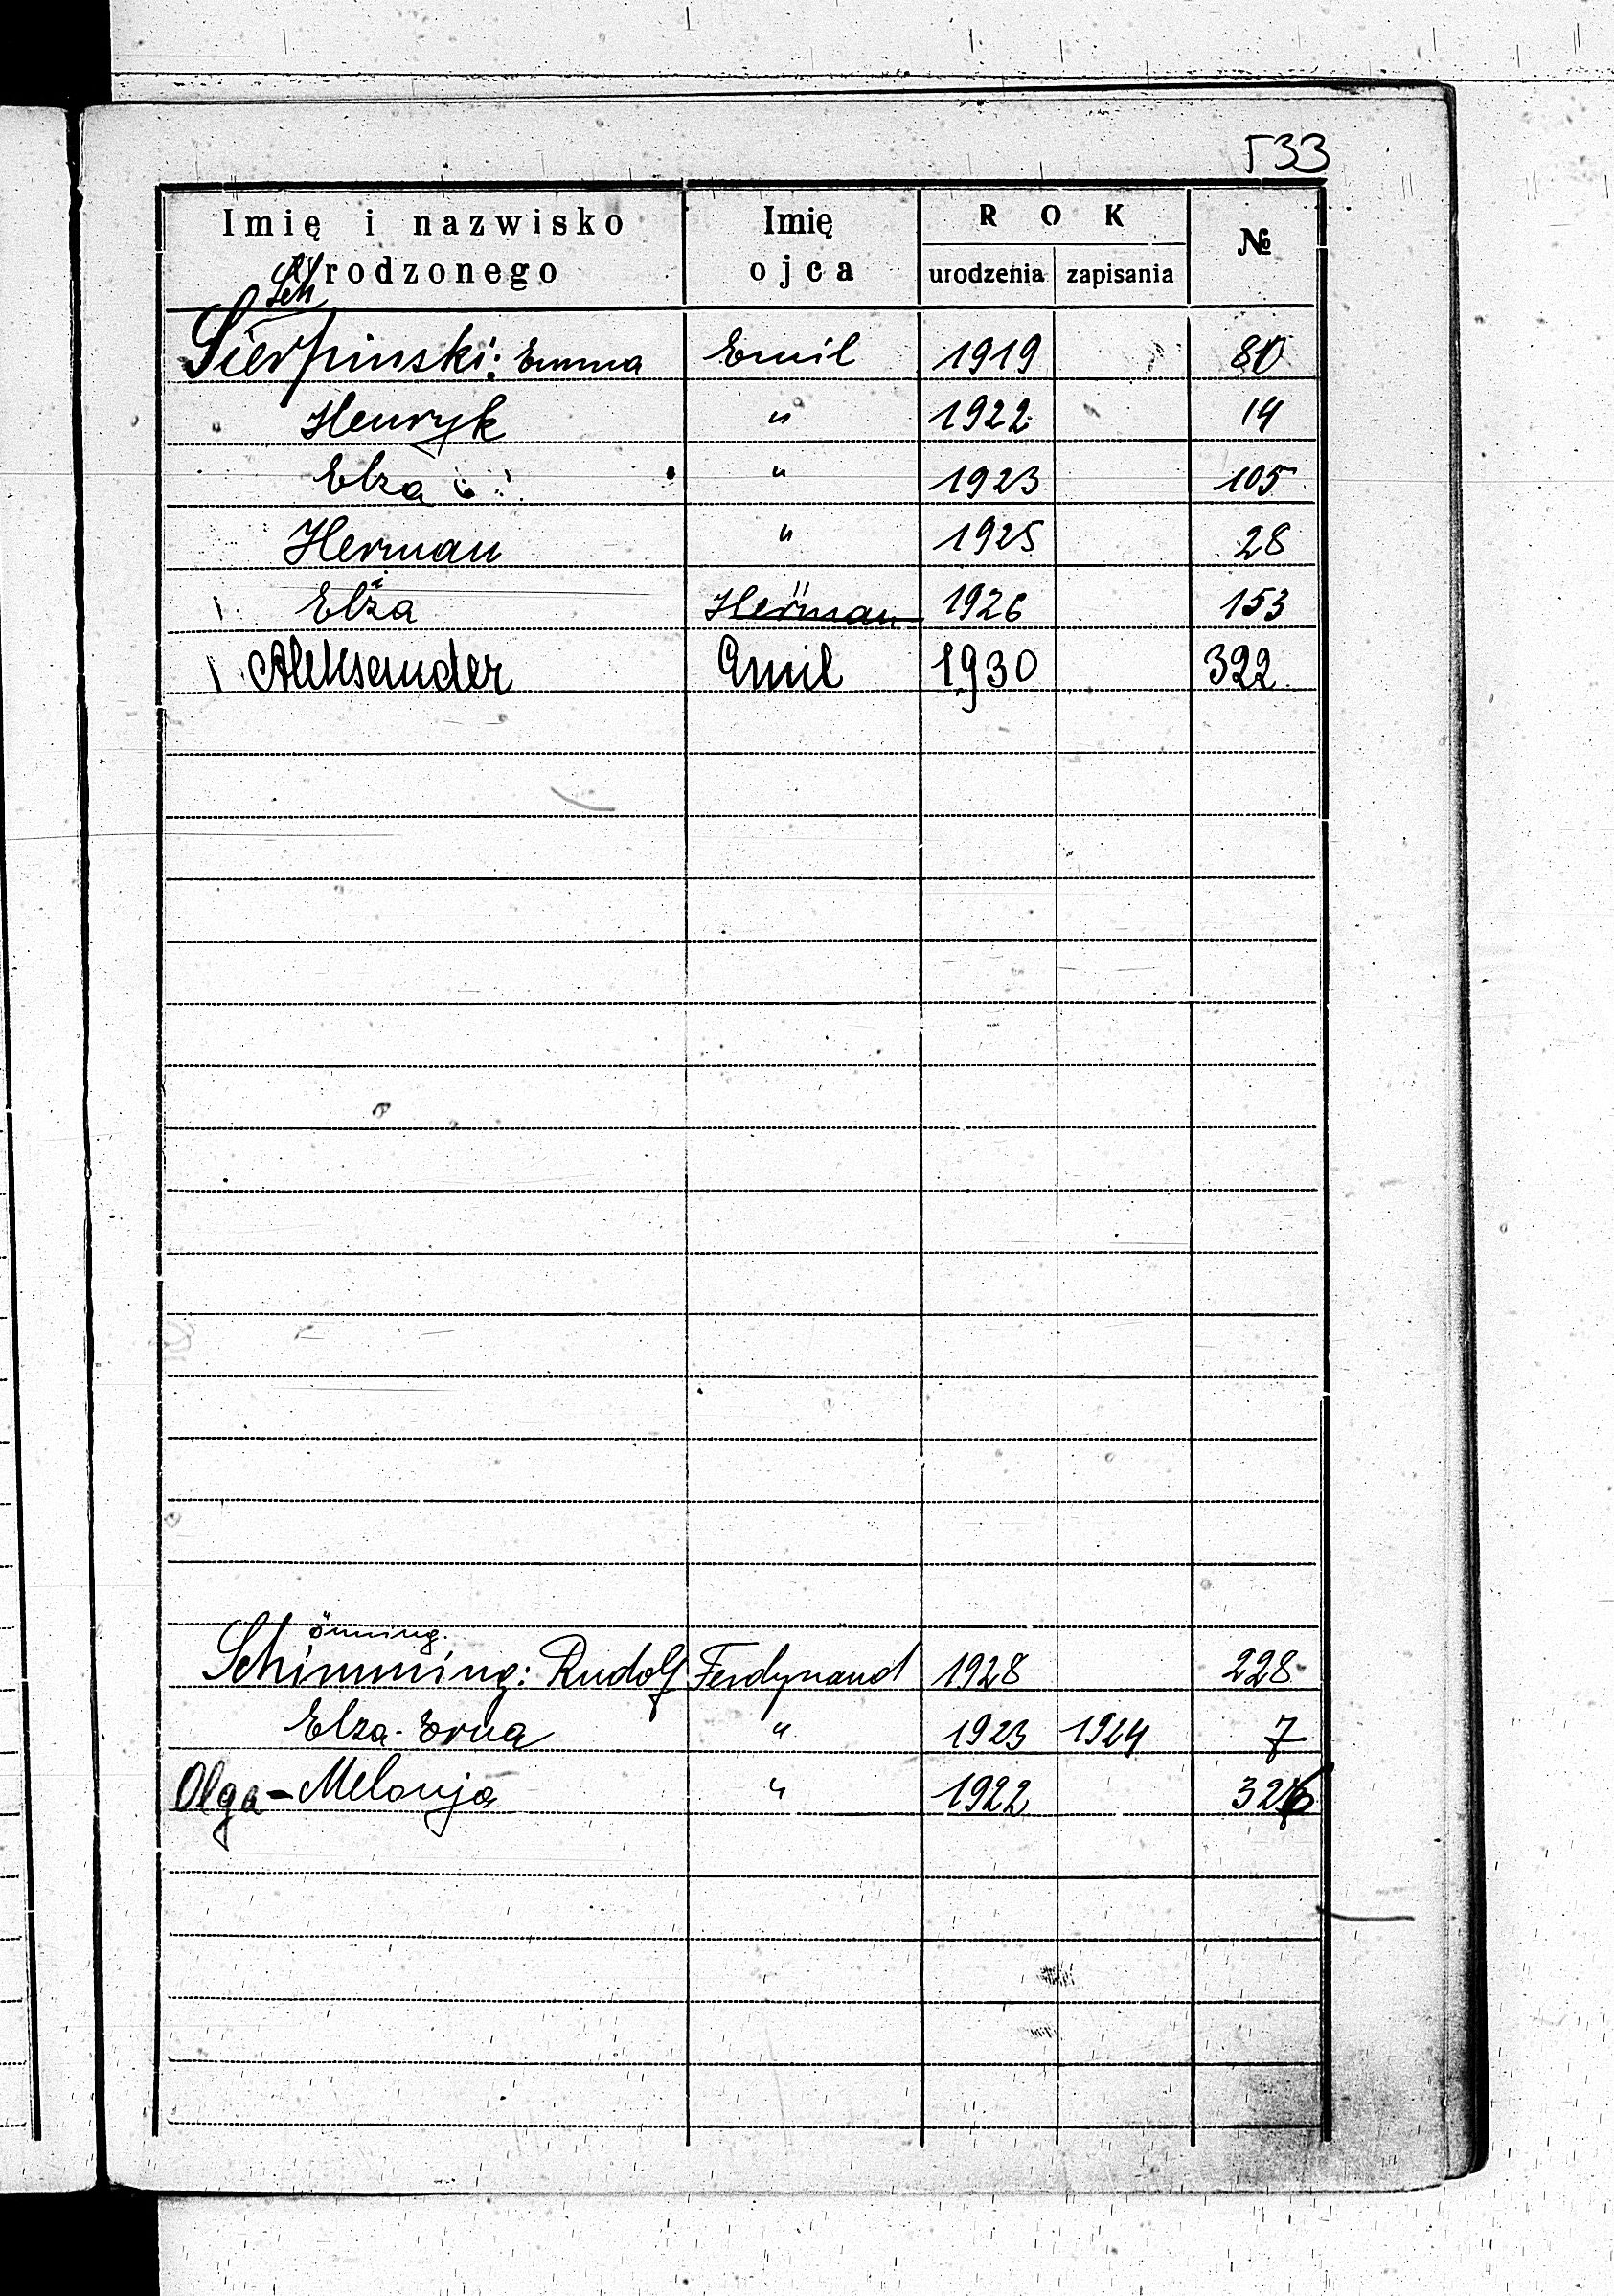 533
Imię i nazwisko Urodzonego | Imię ojca | ROK urodzenia | zapisania | №
Sch
Sierpinski: Emma | Emil | 1919 | | 80
Henryk | " | 1922 | | 14
Elza | " | 1923 | | 105
Herman | " | 1925 | | 28
Elza | " Herman | 1926 | | 153
Aleksander | Emil | 1930 | | 322
önning
Schimming: Rudolf | Ferdynand | 1928 | | 228
Elza-Erna | " | 1923 | 1924 | 7
Olga-Melanja | " | 1922 | | 326